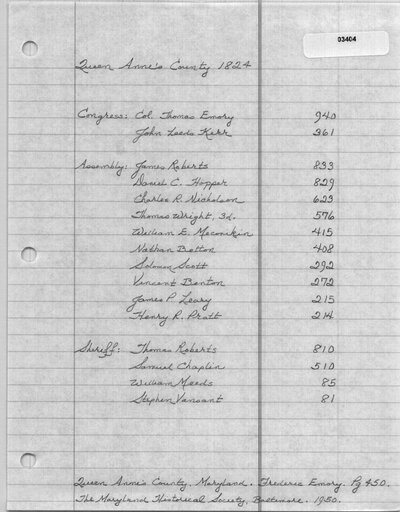 03404
Queen Anne's County 1824
Congress: Col. Thomas Emory 940
John Leeds Kerr 361
Assembly: James Roberts 833
Daniel C. Hopper 829
Charles R. Nicholson 623
Thomas Wright, 3d. 576
William E. Meconikin 415
Nathan Betton 408
Solomon Scott 292
Vincent Benton 272
James P. Leary 215
Henry R. Pratt 214
Sheriff: Thomas Roberts 810
Samuel Chaplin 510
William Meeds 85
Stephen Vansant 81
Queen Anne's County, Maryland. Frederic Emory. Pg 450.
The Maryland Historical Society, Baltimore. 1950.